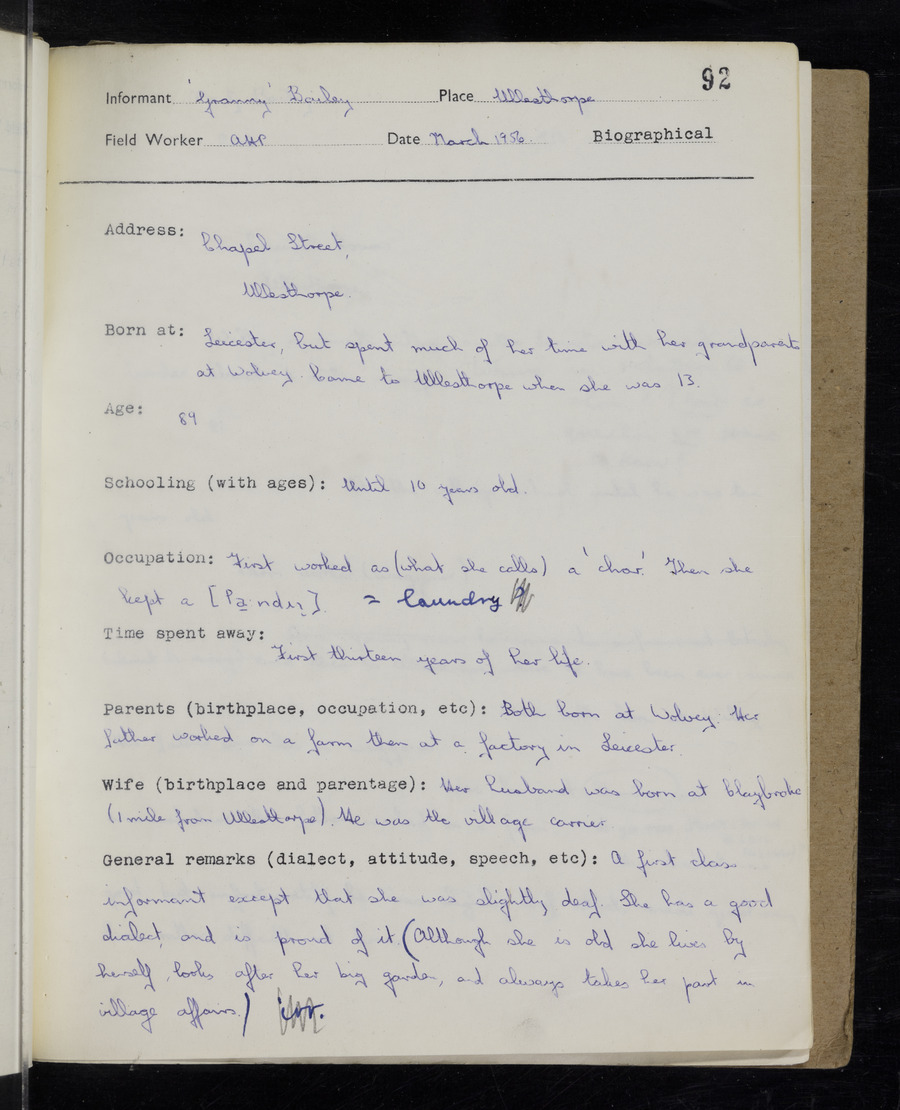 92
Informant 'Granny' Bailey Place Ullesthorpe
Field Worker AHP Date March 1956. Biographical
Address: Chapel Street,
Ullesthorpe.
Born at: Leicester, but spent much of her time with her grandparents
at Wolvey. Came to Ullesthorpe when she was 13.
Age: 89
Schooling (with ages): Until 10 years old.
Occupation: First worked as (what she calls) a 'char'. Then she
kept a = laundry
Time spent away:
First thirteen years of her life.
Parents (birthplace, occupation, etc): Both born at Wolvey. Her
father worked on a farm then at a factory in Leicester.
Wife (birthplace and parentage): Her husband was born at Claybroke
(1 mile from Ullesthorpe). He was the village carrier.
General remarks (dialect, attitude, speech, etc): A first class
informant except that she was slightly deaf. She has a good
dialect, and is proud of it. (Although she is old she lives by
herself, looks after her big garden, and always takes her part in
village affairs.)